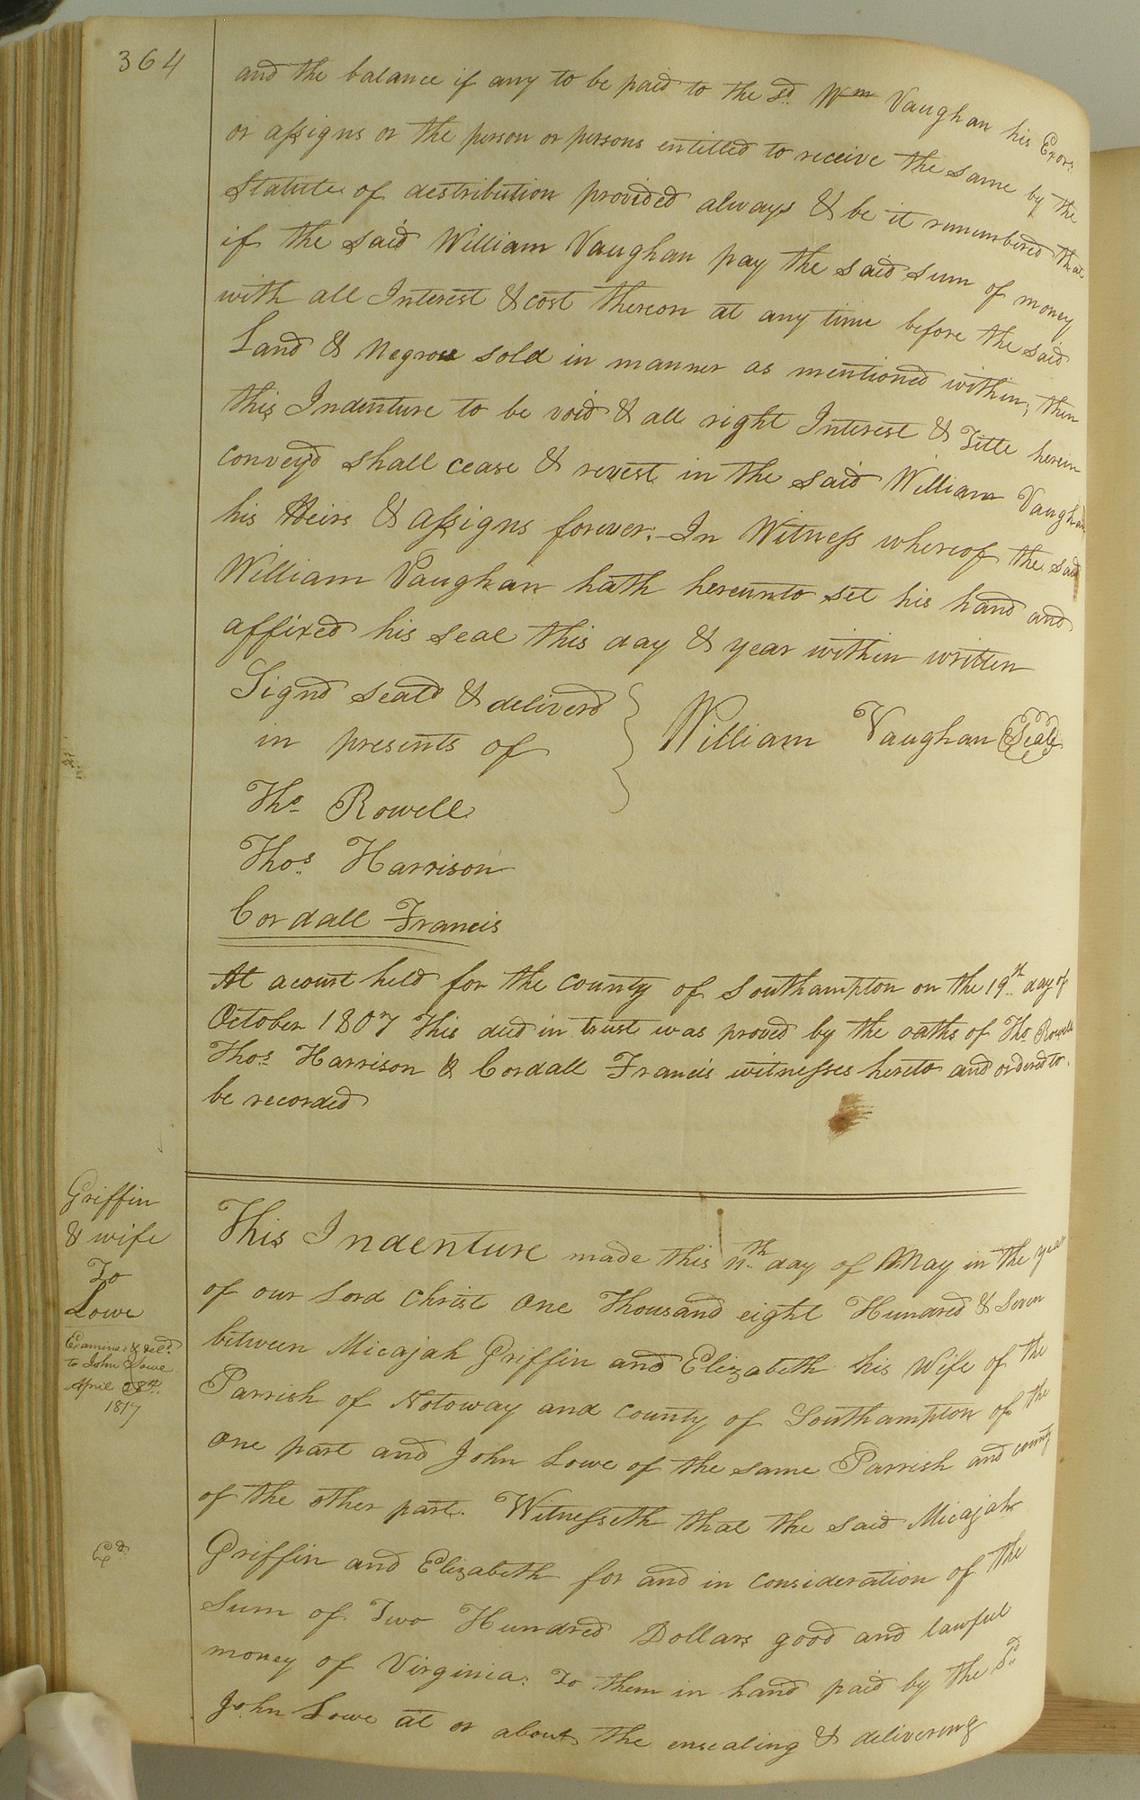 364
and the balance if any to be paid to the Sd. Wm Vaughan his Exors.
or assigns or the person or persons entitled to receive the same by the
Statute of destribution provided always & be it remembered that
if the said William Vaughan pay the said sum of money
with all Interest & cost thereon at any time before the said
Land & Negroes sold in manner as mentioned within, then
this Indenture to be void & all right Interest & Title herein
convey'd shall cease & revest in the said William Vaughan
his Heirs & assigns forever:- In Witness whereof the said
William Vaughan hath hereunto set his hand and
affixed his seal this day & year within written
Signd seald & deliverd
in presents of
William Vaughan Seal
Tho. Rowell
Thos. Harrison
Cordall Francis
At a court held for the county of Southampton on the 19th day of
October 1807 This deed in trust was proved by the oaths of Tho Rowell
Thos. Harrison & Cordall Francis witnesses hereto and ordered to
be recorded
Griffin
& wife
To
Lowe
Examined & deld.
to John Lowe
April 28th.
1817
Ed.
This Indenture made this 11th. day of May in the year
of our Lord Christ One Thousand eight Hundred & Seven
between Micajah Griffin and Elizabeth his Wife of the
Parrish of Notoway and county of Southampton of the
one part and John Lowe of the same Parrish and county
of the other part. Witnesseth that the said Micajah
Griffin and Elizabeth for and in consideration of the
Sum of Two Hundred Dollars good and lawful
money of Virginia: to them in hand paid by the Sd.
John Lowe at or about the ensealing & delivering